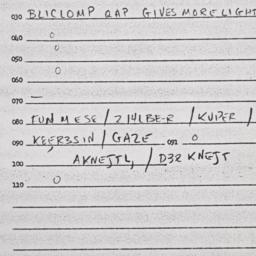 030 BLICLOMP GAP GIVES MORE LIGHT
040 0
0
050
0
060
070 —
080 FUN MESE / Z14LBE-R / KUPER /
090 KEER3SIN / GAZE 091 0
100 AKNEJTL, / D3R KNEJT
110 0